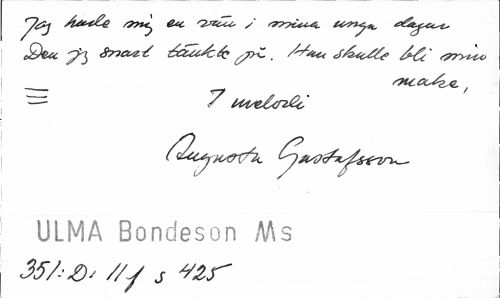 Jag hade mig en vän i mina unga dagar
Den jg snart tänkte på. Han skulle bli min
make,
7 melodi
Augusta Gustafsson
ULMA Bondeson Ms
351: D: 11 f s 425